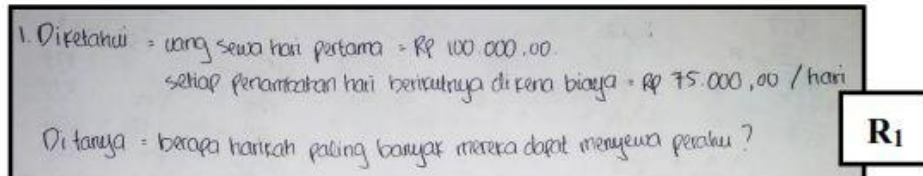 1. Diketahui = uang sewa hari pertama = Rp 100.000.00.
setiap penambahan hari berikutnya dikena biaya = Rp 75.000,00 / hari
Ditanya = berapa harikah paling banyak mereka dapat menyewa perahu ?
R1